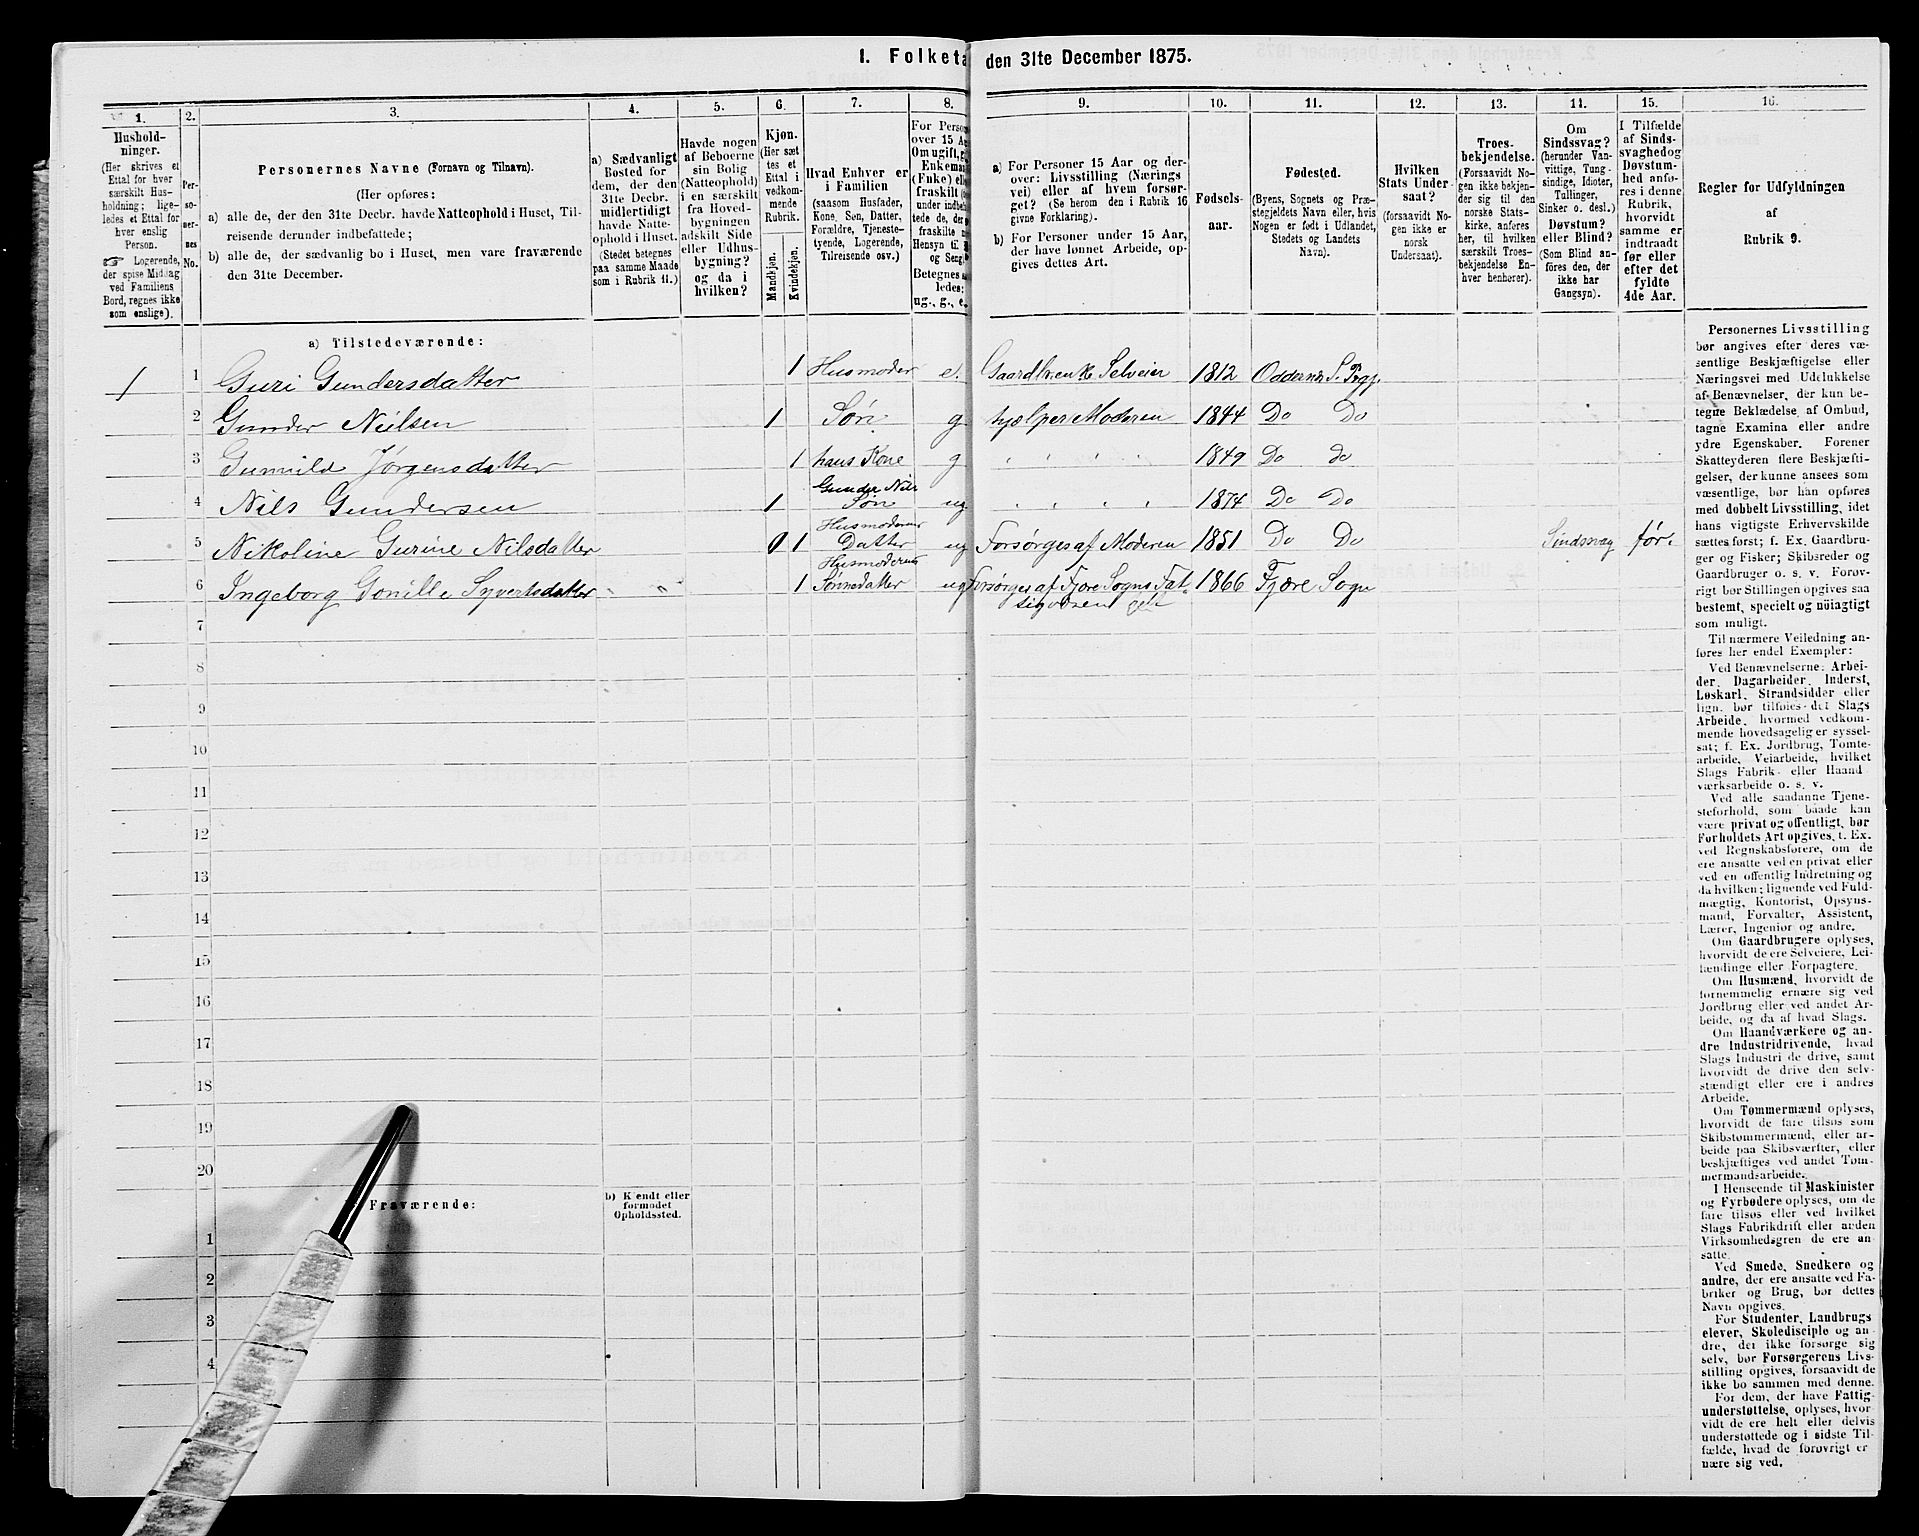 I. Folketa den 31te December 1875.
1. 2. 3. 4. 5. 6. 7. 8. 9. 10. 11. 12. 13. 14. 15. 16.
Hushold-
ninger.
(Her skrives et
Ettal for hver
særskilt Hus-
holdning; lige-
ledes et Ettal for
hver enslig
Person.
☞ Logerende,
der spise Middag
ved Familiens
Bord, regnes ikke
som enslige).
Per-
so-
ner-
nes
No.
Personernes Navne (Fornavn og Tilnavn).
(Her opføres:
a) alle de, der den 31te Decbr. havde Natteophold i Huset, Til-
reisende derunder indbefattede;
b) alle de, der sædvanlig bo i Huset, men vare fraværende
den 31te December.
a) Sædvanligt
Bosted for
dem, der den
31te Decbr.
midlertidigt
havde Natte-
ophold i Huset.
(Stedet betegnes
paa samme Maade
som i Rubrik 11.)
Havde nogen
af Beboerne
sin Bolig
(Natteophold)
i en særskilt
fra Hoved-
bygningen
adskilt Side
eller Udhus-
bygning?
og da i
hvilken?
Kjøn.
(Her sæt
tes et
Ettal i
vedkom-
mende
Rubrik.
Mandkjøn.
Kvindekjøn.
Hvad Enhver er
i Familien
(saasom Husfader,
Kone, Søn, Datter,
Forældre, Tjeneste-
tyende, Logerende,
Tilreisende osv.)
For Perso
over 15 Aa
Om ugift, g
Enkema
(Enke) el
fraskilt
under indbe
tede de, der
fraskilte
Hensyn til
og Seng
Betegnes
ledes:
ug., g., e.
a) For Personer 15 Aar og der-
over: Livsstilling (Nærings
vei) eller af hvem forsør-
get? (Se herom den i Rubrik 16
givne Forklaring).
b) For Personer under 15 Aar,
der have lønnet Arbeide, op-
gives dettes Art.
Fødsels-
aar.
Fødested.
(Byens, Sognets og Præ-
stegjeldets Navn eller, hvis
Nogen er født i Udlandet,
Stedets og Landets
Navn).
Hvilken
Stats Under-
saat?
(forsaavidt No-
gen ikke er
norsk
Undersaat).
Troes-
bekjendelse.
(Forsaavidt No-
gen ikke bekjen-
der sig til den
norske Stats-
kirke, anføres
her, til hvilken
særskilt Troes-
bekjendelse En-
hver henhører).
Om
Sindssvag?
(herunder Van-
vittige, Tung-
sindige, Idioter,
Tullinger,
Sinker o. desl.)
Døvstum?
eller Blind?
(Som Blind an-
føres den, der
ikke har
Gangsyn).
I Tilfælde
af Sinds-
svaghed og
Døvstum-
hed anfø-
res i denne
Rubrik,
hvorvidt
samme er
indtraadt
før eller
efter det
fyldte
4de Aar.
Regler for Udfyldningen
af
Rubrik 9.
a) Tilstedeværende:
1 1 Guri Gundersdatter 1 Husmoder e. Gaardb.enke Selveier 1812 Oddernes S. Prgj.
2 Gunder Nielsen 1 Søn g hjælper Moderen 1844 Do Do
3 Gunvild Jørgensdatter 1 hans Kone g " " " " 1849 Do do
4 Nils Gundersen 1 Gunder Nils Søn ug " " " " 1874 Do Do
5 Nikoline Gurine Nilsdatter 0 1 Husmoderens Datter ug Forsørges af Moderen 1851 Do Do Sindssvag før.
6 Ingeborg Gonille Syvertsdatter " " 1 Husmoderens Sønnedatter ug Forsørges af Fjære Sogns Fat-
tigvæsen 1866 Fjære Sogn
7
8
9
10
11
12
13
14
15
16
17
18
19
20
Fraværende:
b) Kjendt eller
formodet
Opholdssted.
1
2
3
4
Personernes Livsstilling
bør angives efter deres væ-
sentlige Beskjæftigelse eller
Næringsvei med Udelukkelse
af Benævnelser, der kun be-
tegne Beklædelse af Ombud,
tagne Examina eller andre
ydre Egenskaber. Forener
Skatteyderen flere Beskjæfti-
gelser, der kunne ansees som
væsentlige, bør han opføres
med dobbelt Livsstilling, idet
hans vigtigste Erhvervskilde
sættes først; f. Ex. Gaardbru-
ger og Fisker; Skibsreder og
Gaardbruger o. s. v. Forøv-
rigt bør Stillingen opgives saa
bestemt, specielt og nöiagtigt
som muligt.
Til nærmere Veiledning an-
føres her endel Exempler:
Ved Benævnelserne: Arbei-
der, Dagarbeider, Inderst,
Løskarl, Strandsidder eller
lign. bør tilføies det Slags
Arbeide, hvormed vedkom-
mende hovedsagelig er syssel-
sat; f. Ex. Jordbrug, Tomte-
arbeide, Veiarbeide, hvilket
Slags Fabrik- eller Haand
værksarbeide o. s. v.
Ved alle saadanne Tjene-
steforhold, som baade kan
være privat og offentligt, bør
Forholdets Art opgives, t. Ex.
ved Regnskabsførere, om de
ere ansatte ved en privat eller
ved en offentlig Indretning og
da hvilken; lignende ved Fuld-
mægtig, Kontorist, Opsyns-
mand, Forvalter, Assistent,
Lærer, Ingeniør og andre.
Om Gaardbrugere oplyses,
hvorvidt de ere Selveiere, Lei-
lændinge eller Forpagtere.
Om Husmænd, hvorvidt de
fornemmelig ernære sig ved
Jordbrug eller ved andet Ar-
beide, og da af hvad Slags.
Om Haandværkere og an-
dre Industridrivende, hvad
Slags Industri de drive, samt
hvorvidt de drive den selv-
stændigt eller ere i andres
Arbeide.
Om Tømmermænd oplyses,
hvorvidt de fare tilsøs som
Skibstømmermænd, eller ar-
beide paa Skibsværfter, eller
beskjæftiges ved andet Tøm-
mermandsarbeide.
I Henseende til Maskinister
og Fyrbødere oplyses, om de
fare tilsøs eller ved hvilket
Slags Fabrikdrift eller anden
Virksomhedsgren de ere an-
satte.
Ved Smede, Snedkere og
andre, der ere ansatte ved Fa-
briker og Brug, bør dettes
Navn opgives.
For Studenter, Landbrugs
elever, Skoledisciple og an-
dre, der ikke forsørge sig
selv, bør Forsørgerens Livs-
stilling opgives, forsaavidt de
ikke bo sammen med denne.
For dem, der have Fattig-
understøttelse, oplyses, hvor-
vidt de ere helt eller delvis
understøttede og i sidste Til-
fælde, hvad de forøvrigt er
nære sig ved.